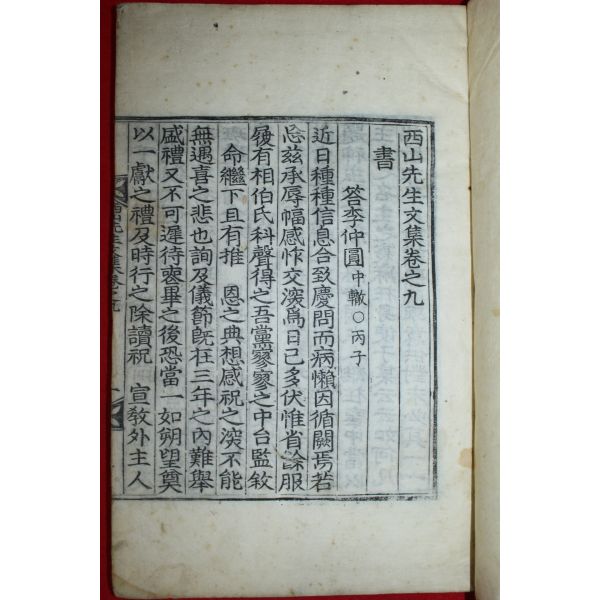 西山先生文集卷之九
書
答李仲圓中轍○丙子
近日種種信息合致慶問而病懶因循闕焉若
忘玆承辱幅感怍交深爲日已多伏惟省餘服
履有相伯氏科聲得之吾黨寥寥之中台監敘
命繼下且有推 恩之典想感祝之深不能
無遇喜之悲也詢及儀節旣在三年之內難擧
盛禮又不可遲待喪畢之後恐當一如朔望奠
以一獻之禮及時行之除讀祝 宣敎外主人
西山先生文集卷之九